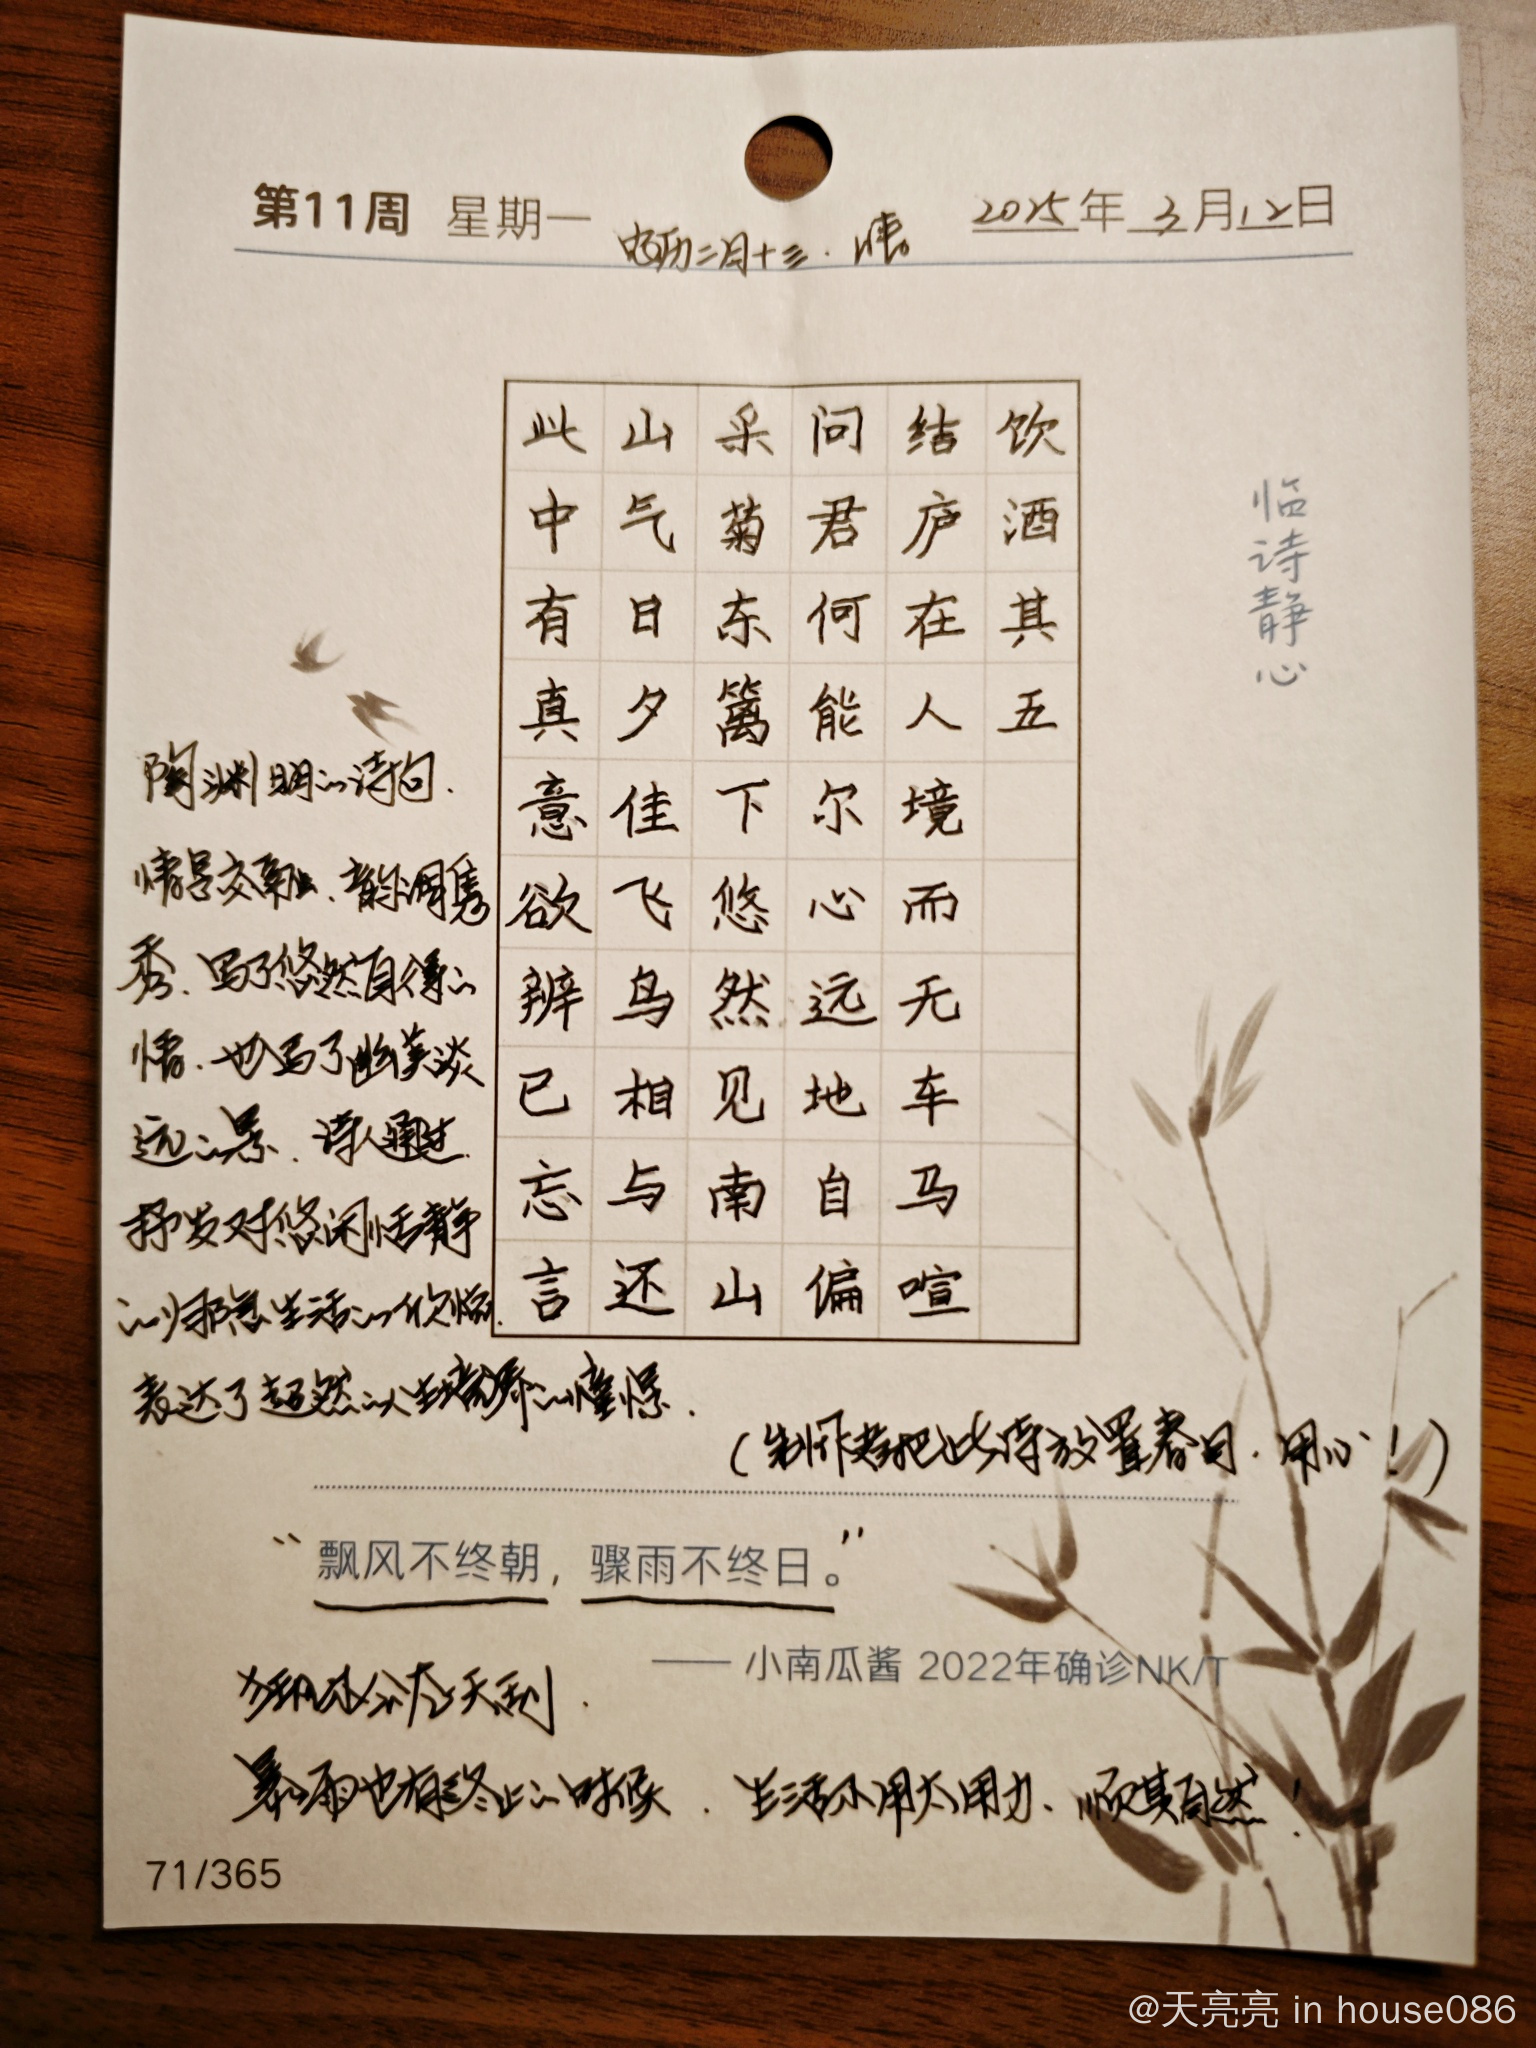 第11周 星期一
农历二月十三.晴。
2025年3月12日
临诗静心
饮酒其五
结庐在人境而无车马喧
问君何能尔心远地自偏
采菊东篱下悠然见南山
山气日夕佳飞鸟相与还
此中有真意欲辨已忘言
陶渊明的诗句.
情景交融、韵调隽
秀.写了悠然自得的
情.也写了幽美淡
远的景.诗人通过
抒发对悠闲恬静
的归隐生活的
表达了超然的人生境界的憧憬.
(制作者把此诗放置春日.用心!)
“飘风不终朝,骤雨不终日。”
—— 小南瓜酱 2022年确诊NK/T
狂风
暴雨也有终止的时候.生活不用太用力、顺其自然!
71/365
@天亮亮 in house086